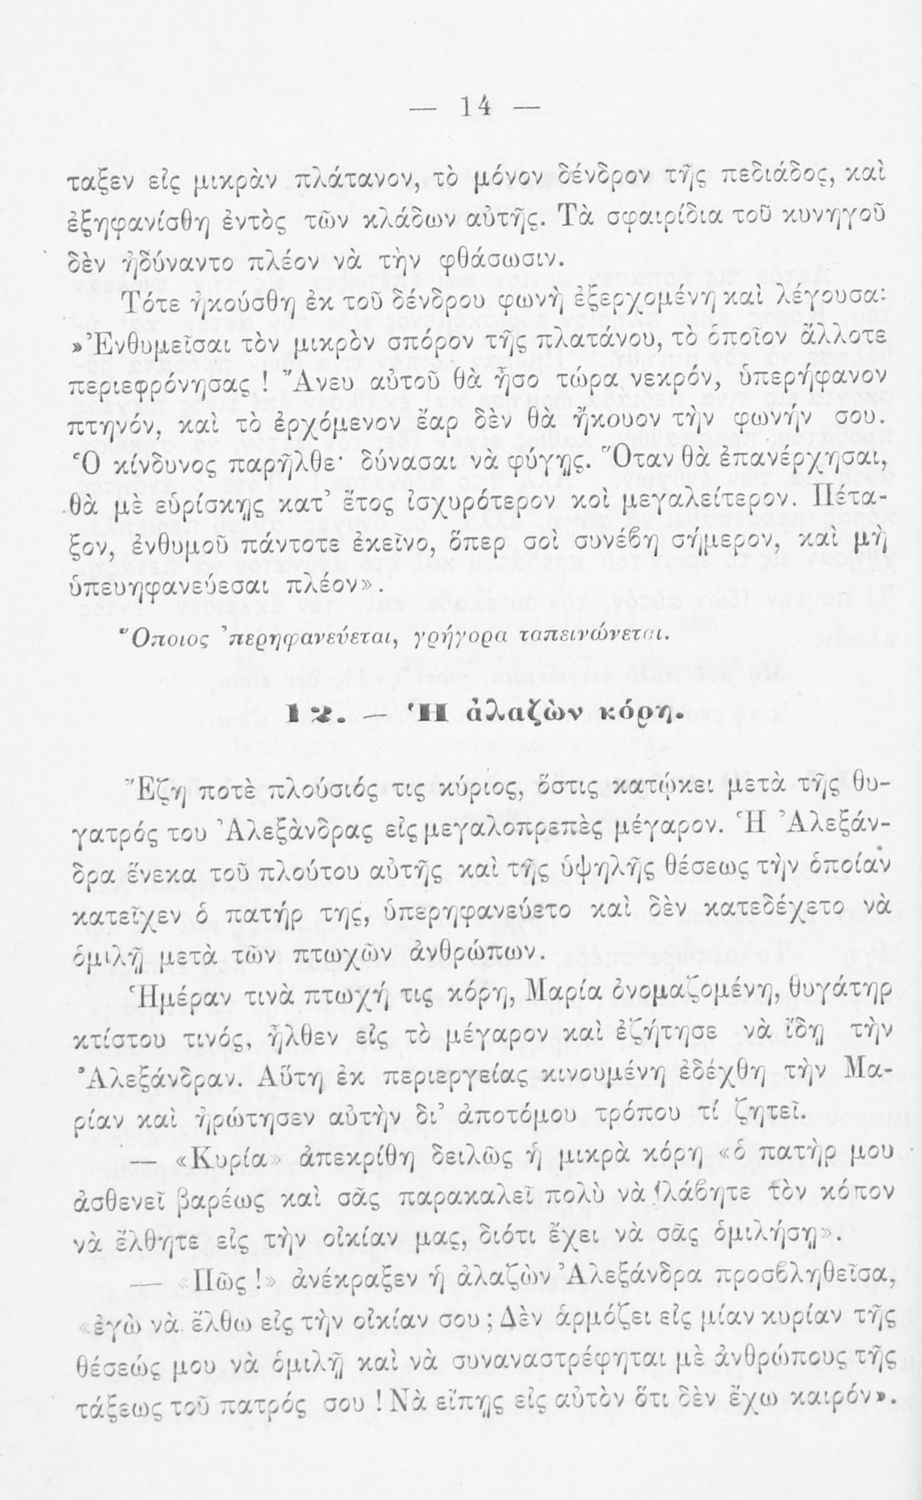 — 14 —
ταξεν εἰς μικρὰν πλάτανον, τὸ μόνον δένδρον τῆς πεδιάδος, καὶ
ἐξηφανίσθη ἐντὸς τῶν κλάδων αὐτῆς. Τὰ σφαιρίδια τοῦ κυνηγοῦ
δὲν ἠδύναντο πλέον νὰ τὴν φθάσωσιν.
Τότε ἠκούσθη ἐκ τοῦ δένδρου φωνὴ ἐξερχομένη καὶ λέγουσα:
»Ἐνθυμεῖσαι τὸν μικρὸν σπόρον τῆς πλατάνου, τὸ ὁποῖον ἄλλοτε
περιεφρόνησας ! Ἄνευ αὐτοῦ θὰ ἦσο τώρα νεκρόν, ὑπερήφανον
πτηνόν, καὶ τὸ ἐρχόμενον ἔαρ δὲν θὰ ἤκουον τὴν φωνήν σου.
Ὁ κίνδυνος παρῆλθε· δύνασαι νὰ φύγῃς. Ὅταν θὰ ἐπανέρχησαι,
θὰ μὲ εὑρίσκῃς κατ’ ἔτος ἰσχυρότερον κοὶ μεγαλείτερον. Πέτα-
ξον, ἐνθυμοῦ πάντοτε ἐκεῖνο, ὅπερ σοὶ συνέβη σήμερον, καὶ μὴ
ὑπευηφανεύεσαι πλέον».
Ὅποιος ’περηφανεύεται, γρήγορα ταπεινώνεται.
12. — Ἡ ἀλαζὼν κόρη.
Ἔζη ποτὲ πλούσιός τις κύριος, ὅστις κατῴκει μετὰ τῆς θυ-
γατρός του Ἀλεξὰνδρας εἰς μεγαλοπρεπὲς μέγαρον. Ἡ Ἀλεξάν-
δρα ἕνεκα τοῦ πλούτου αὐτῆς καὶ τῆς ὑψηλῆς θέσεως τὴν ὁποίαν
κατεῖχεν ὁ πατήρ της, ὑπερηφανεύετο καὶ δὲν κατεδέχετο νὰ
ὁμιλῇ μετὰ τῶν πτωχῶν ἀνθρώπων.
Ἡμέραν τινὰ πτωχή τις κόρη, Μαρία ὀνομαζομένη, θυγάτηρ
κτίστου τινός, ἦλθεν εἰς τὸ μέγαρον καὶ ἐζήτησε νὰ ἴδῃ τὴν
Ἀλεξάνδραν. Αὕτη ἐκ περιεργείας κινουμένη ἐδέχθη τὴν Μα-
ρίαν καὶ ἠρώτησεν αὐτὴν δι’ ἀποτόμου τρόπου τί ζητεῖ.
— «Κυρία» ἀπεκρίθη δειλῶς ἡ μικρὰ κόρη «ὁ πατὴρ μου
ἀσθενεῖ βαρέως καὶ σᾶς παρακαλεῖ πολὺ νὰ λάβητε τὸν κόπον
νὰ ἔλθητε εἰς τὴν οἰκίαν μας, διότι ἔχει νὰ σᾶς ὁμιλήσῃ».
— «Πῶς !» ἀνέκραξεν ἡ ἀλαζὼν Ἀλεξάνδρα προσβληθεῖσα,
«ἐγὼ νὰ ἔλθω εἰς τὴν οἰκίαν σου ; Δὲν ἁρμόζει εἰς μίαν κυρίαν τῆς
θέσεώς μου νὰ ὁμιλῇ καὶ νὰ συναναστρέφηται μὲ ἀνθρώπους τῆς
τάξεως τοῦ πατρός σου ! Νὰ εἴπῃς εἰς αὐτὸν ὅτι δὲν ἔχω καιρόν».